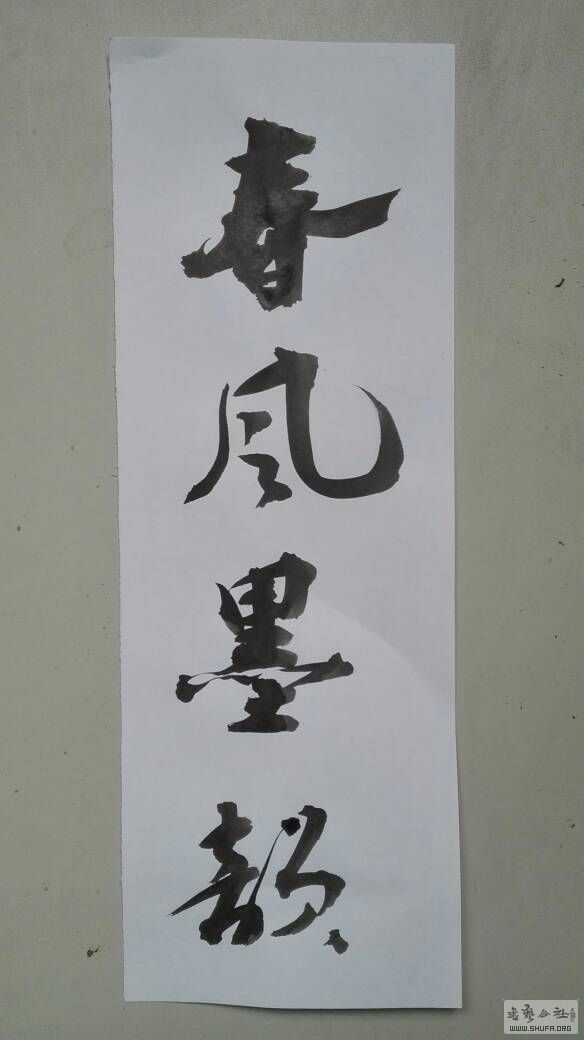 春风墨韵
书艺公社
WWW.SHUFA.ORG